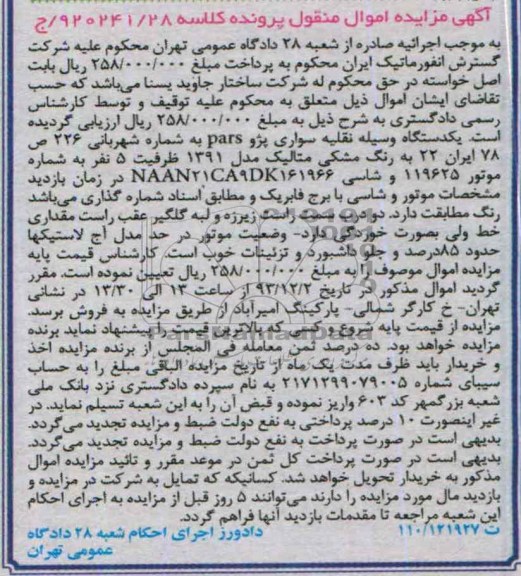 آگهی مزایده اموال منقول پرونده کلاسه ۹۲۰۲۴۱/۲۸/ج
به موجب اجرائیه صادره از شعبه ۲۸ دادگاه عمومی تهران محکوم علیه شرکت
گسترش انفورماتیک ایران محکوم به پرداخت مبلغ ۲۵۸/۰۰۰/۰۰۰ ریال بابت
اصل خواسته در حق محکوم له شرکت ساختار جاوید یسنا می‌باشد که حسب
تقاضای ایشان اموال ذیل متعلق به محکوم علیه توقیف و توسط کارشناس
رسمی دادگستری به شرح ذیل به مبلغ ۲۵۸/۰۰۰/۰۰۰ ریال ارزیابی گردیده
است. یکدستگاه وسیله نقلیه سواری پژو pars به شماره شهربانی ۲۲۶ ص
۷۸ ایران ۲۲ به رنگ مشکی متالیک مدل ۱۳۹۱ ظرفیت ۵ نفر به شماره
موتور ۱۱۹۶۲۵ و شاسی NAAN۲۱CA۹DK۱۶۱۹۶۶ در زمان بازدید
مشخصات موتور و شاسی با برج فابریک و مطابق اسناد شماره گذاری می‌باشد
رنگ مطابقت دارد. دور سمت راست زیرزه و لبه گلگیر عقب راست مقداری
خط ولی بصورت خوردگی دارد- وضعیت موتور در حد مدل آج لاستیکها
حدود ۸۵درصد و جلو داشبورد و تزئینات خوب است. کارشناس قیمت پایه
مزایده اموال موصوف را به مبلغ ۲۵۸/۰۰۰/۰۰۰ ریال تعیین نموده است. مقرر
گردید اموال مذکور در تاریخ ۹۳/۱۲/۲ از ساعت ۱۳ الی ۱۳/۳۰ در نشانی
تهران- خ کارگر شمالی- پارکینگ امیرآباد از طریق مزایده به فروش برسد.
مزایده از قیمت پایه شروع و کسی که بالاترین قیمت را پیشنهاد نماید برنده
مزایده خواهد بود. ده درصد ثمن معامله فی المجلس از برنده مزایده اخذ
و خریدار باید ظرف مدت یک ماه از تاریخ مزایده الباقی مبلغ را به حساب
سیبای شماره ۲۱۷۱۲۹۹۰۷۹۰۰۵ به نام سپرده دادگستری نزد بانک ملی
شعبه بزرگمهر کد ۶۰۳ واریز نموده و قبض آن را به این شعبه تسیلم نماید. در
غیر اینصورت ۱۰ درصد پرداختی به نفع دولت ضبط و مزایده تجدید می‌گردد.
بدیهی است در صورت پرداخت به نفع دولت ضبط و مزایده تجدید می‌گردد.
بدیهی است در صورت پرداخت کل ثمن در موعد مقرر و تائید مزایده اموال
مذکور به خریدار تحویل خواهد شد. کسانیکه که تمایل به شرکت در مزایده و
بازدید مال مورد مزایده را دارند می‌توانند ۵ روز قبل از مزایده به اجرای احکام
این شعبه مراجعه تا مقدمات بازدید آنها فراهم گردد.
ت ۱۱۰/۱۲۱۹۲۷ دادورز اجرای احکام شعبه ۲۸ دادگاه
عمومی تهران